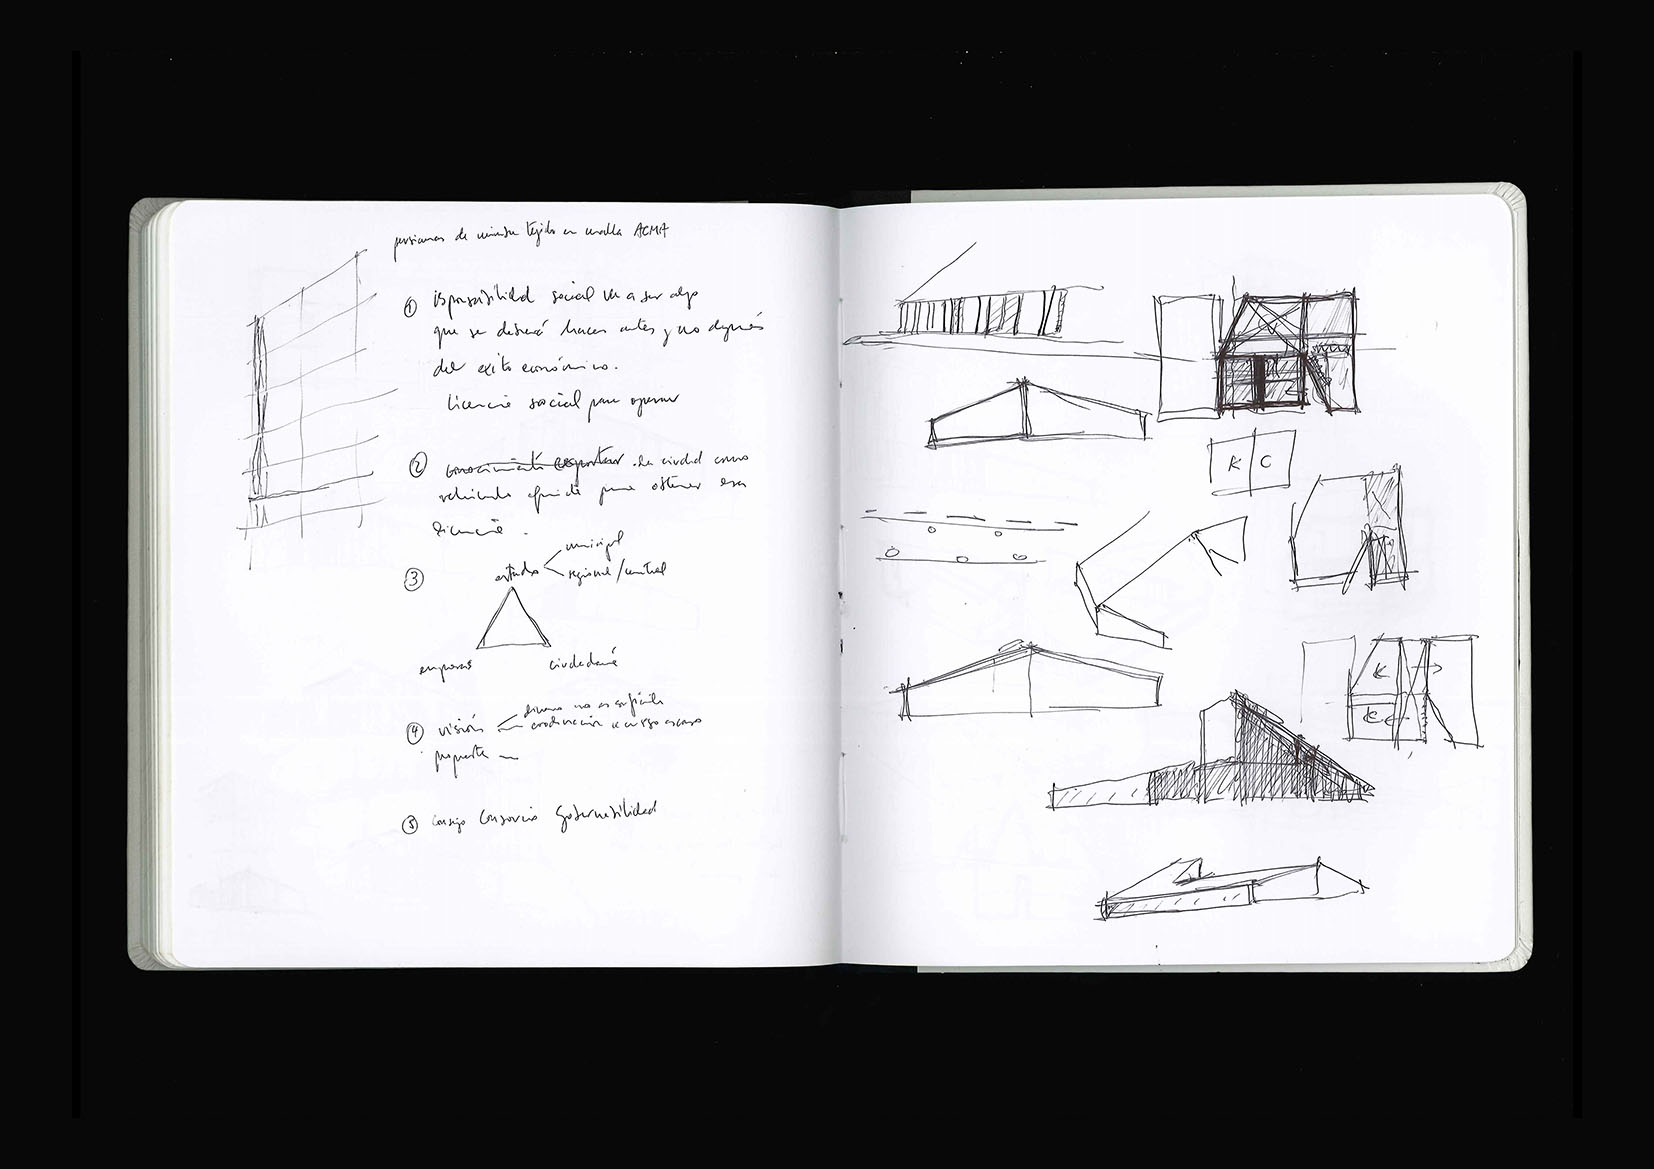 persianas de mimbre tejido en malla ACMA
① responsabilidad social va a ser algo
que se deberá hacer antes y no después
del exito económico.
licencia social para operar
② conocimiento exportar . la ciudad como
vehiculo para obtener esa
licencia .
municipal
③ estado
regional/central
empresas ciudadanía
dinero no es suficiente
④ visión coordinación recurso escaso
propuesta
⑤ consejo consorcio gobernabilidad
K C
K
K